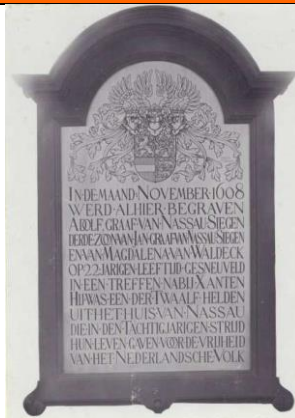 IN·DE·MAAND·NOVEMBER·1608
WERD·ALHIER·BEGRAVEN
ADOLF, GRAAF·VAN·NASSAU·SIEGEN
DERDE·ZOON·VAN·JAN·GRAAF·VAN·NASSAU·SIEGEN
EN·VAN·MAGDALENA·VAN·WALDECK
OP·22·JARIGEN·LEEFTIJD·GESNEUVELD
IN·EEN·TREFFEN·NABIJ·XANTEN
HIJ·WAS·EEN·DER·TWAALF·HELDEN
UIT·HET·HUIS·VAN·NASSAU
DIE·IN·DEN·TACHTIGJARIGEN·STRIJD
HUN·LEVEN·GAVEN·VOOR·DE·VRIJHEID
VAN·HET·NEDERLANDSCHE·VOLK